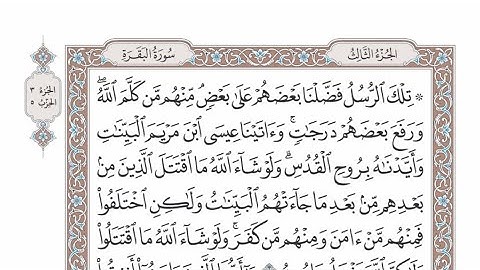 الجزء الثالث
سورة البقرة
الجزء ٣
الحزب ٥
۞ تِلْكَ ٱلرُّسُلُ فَضَّلْنَا بَعْضَهُمْ عَلَىٰ بَعْضٍ مِّنْهُم مَّن كَلَّمَ ٱللَّهُ
وَرَفَعَ بَعْضَهُمْ دَرَجَٰتٍ وَءَاتَيْنَا عِيسَى ٱبْنَ مَرْيَمَ ٱلْبَيِّنَٰتِ
وَأَيَّدْنَٰهُ بِرُوحِ ٱلْقُدُسِ وَلَوْ شَآءَ ٱللَّهُ مَا ٱقْتَتَلَ ٱلَّذِينَ مِنۢ
بَعْدِهِم مِّنۢ بَعْدِ مَا جَآءَتْهُمُ ٱلْبَيِّنَٰتُ وَلَٰكِنِ ٱخْتَلَفُوا۟
فَمِنْهُم مَّنْ ءَامَنَ وَمِنْهُم مَّن كَفَرَ وَلَوْ شَآءَ ٱللَّهُ مَا ٱقْتَتَلُوا۟